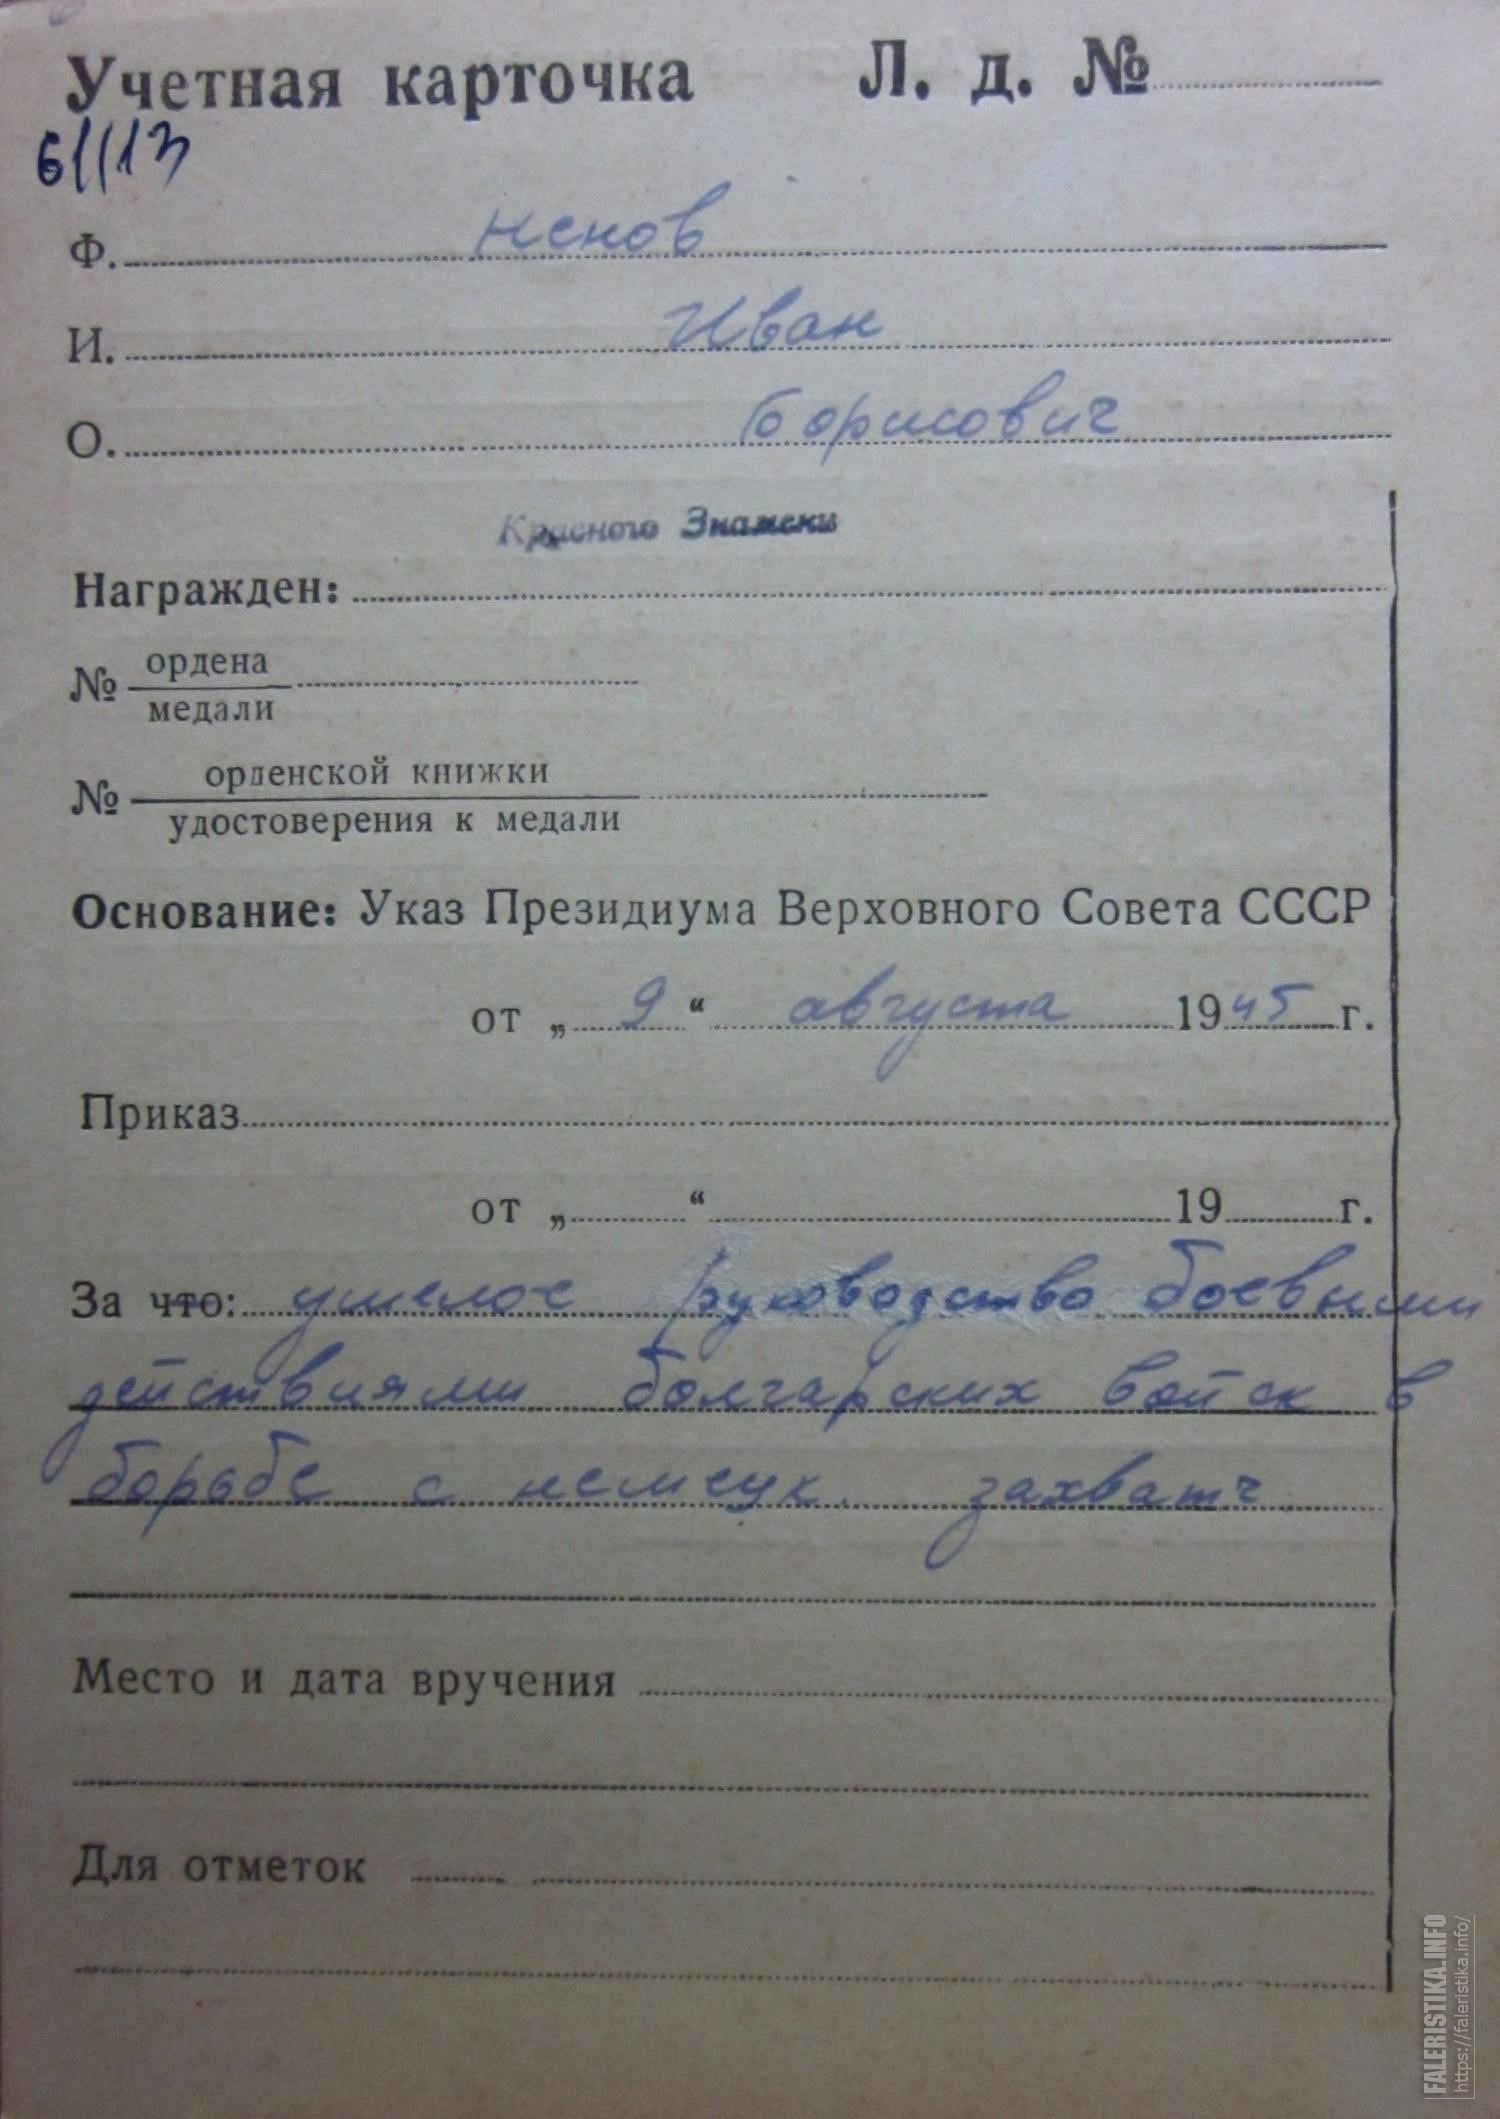 Учетная карточка Л. д. №
61113
Ф. Ненов
И. Иван
О. Борисович
Красного Знамени
Награжден:
№ ордена
медали
№ орденской книжки
удостоверения к медали
Основание: Указ Президиума Верховного Совета СССР
от „ 9 “ августа 1945 г.
Приказ
от „ “ 19 г.
За что: умелое руководство боевыми
действиями болгарских войск в
борьбе с немецк. захватч.
Место и дата вручения
Для отметок
FALERISTIKA.INFO
https://faleristika.info/